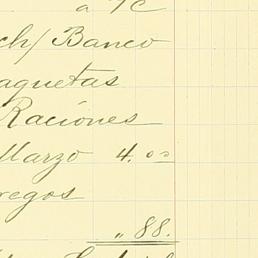 a 7c
ch/ Banco
aquetas
Raciones
Marzo 4.00
regos
" 88.